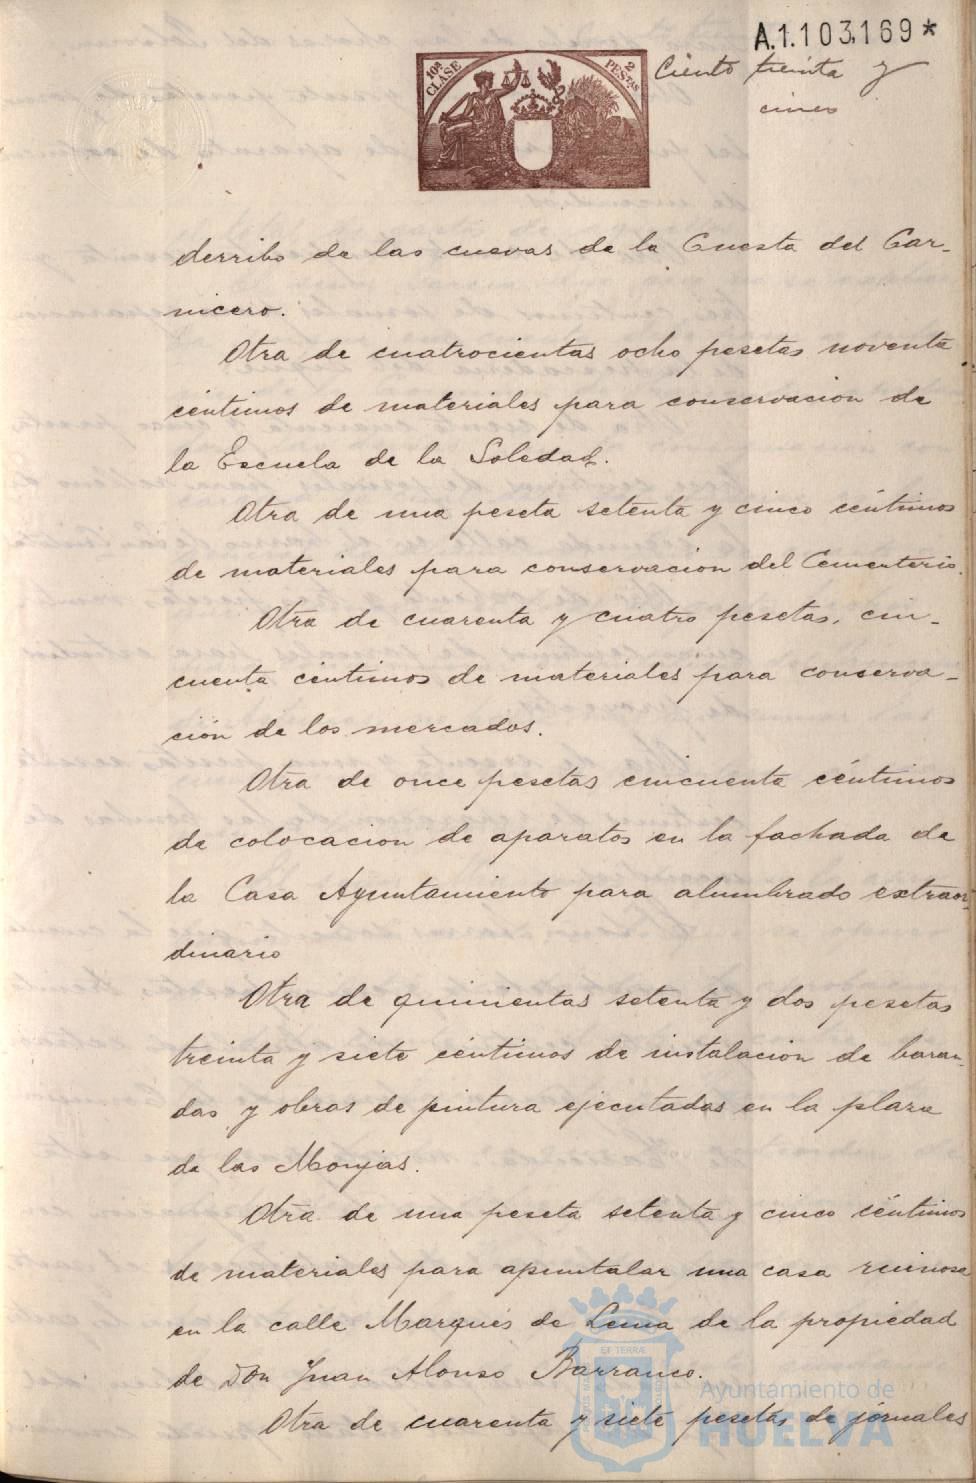 A.1.103,169*
10ª CLASE
2 PESTAS
Ciento treinta y
cinco
derribo de las cuevas de la Cuesta del Car-
nicero.
Otra de cuatrocientas ocho pesetas noventa
céntimos de materiales para conservacion de
la Escuela de la Soledad.
Otra de una peseta setenta y cinco céntimos
de materiales para conservacion del Cementerio.
Otra de cuarenta y cuatro pesetas, cin-
cuenta céntimos de materiales para conserva-
ción de los mercados.
Otra de once pesetas cincuenta céntimos
de colocacion de aparatos en la fachada de
la Casa Ayuntamiento para alumbrado extraor-
dinario
Otra de quinientas setenta y dos pesetas
treinta y siete céntimos de instalacion de baran-
das y obras de pintura ejecutadas en la plaza
de las Monjas.
Otra de una peseta setenta y cinco céntimos
de materiales para apuntalar una casa ruinosa
en la calle Marqués de Lema de la propiedad
de Don Juan Alonso Barranco.
Otra de cuarenta y siete pesetas de jornales
Ayuntamiento de
HUELVA